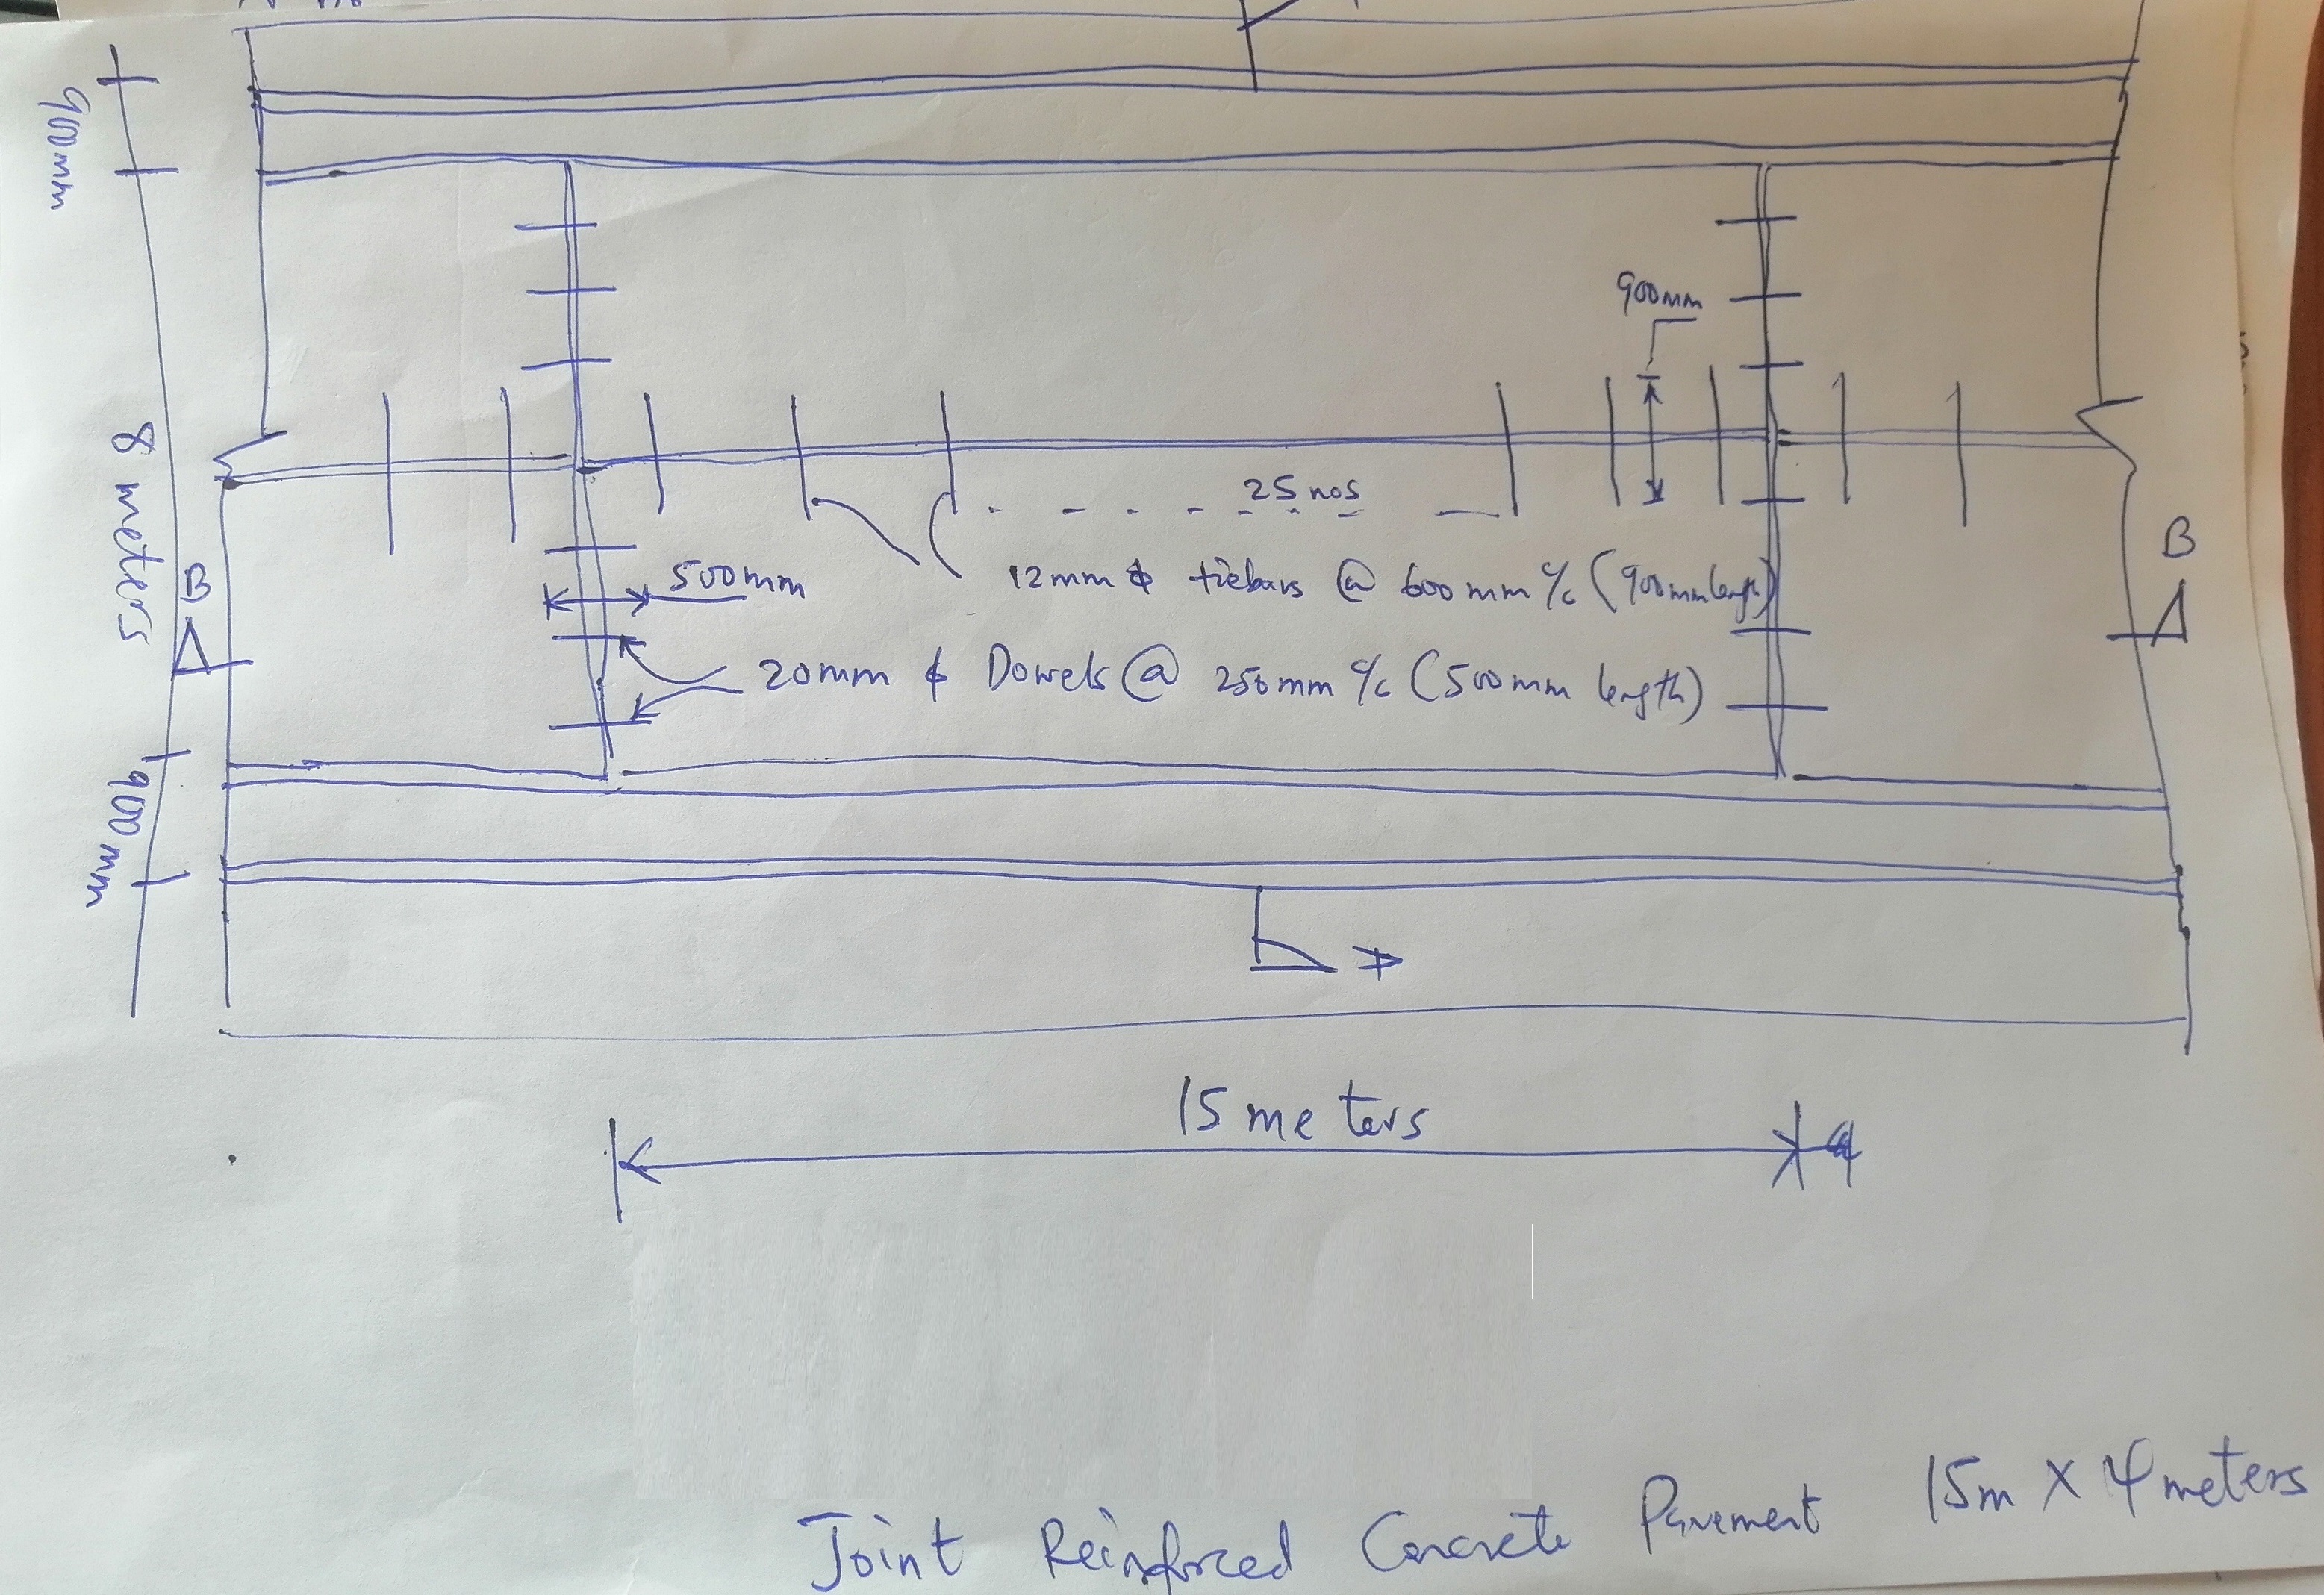 900mm
8 meters
900mm
B
B
900mm
25 nos
12mm ϕ tiebars @ 600mm c/c (900mm length)
500mm
20mm ϕ Dowels @ 250mm c/c (500mm length)
A
15 meters
Joint Reinforced Concrete Pavement 15m X 4 meters